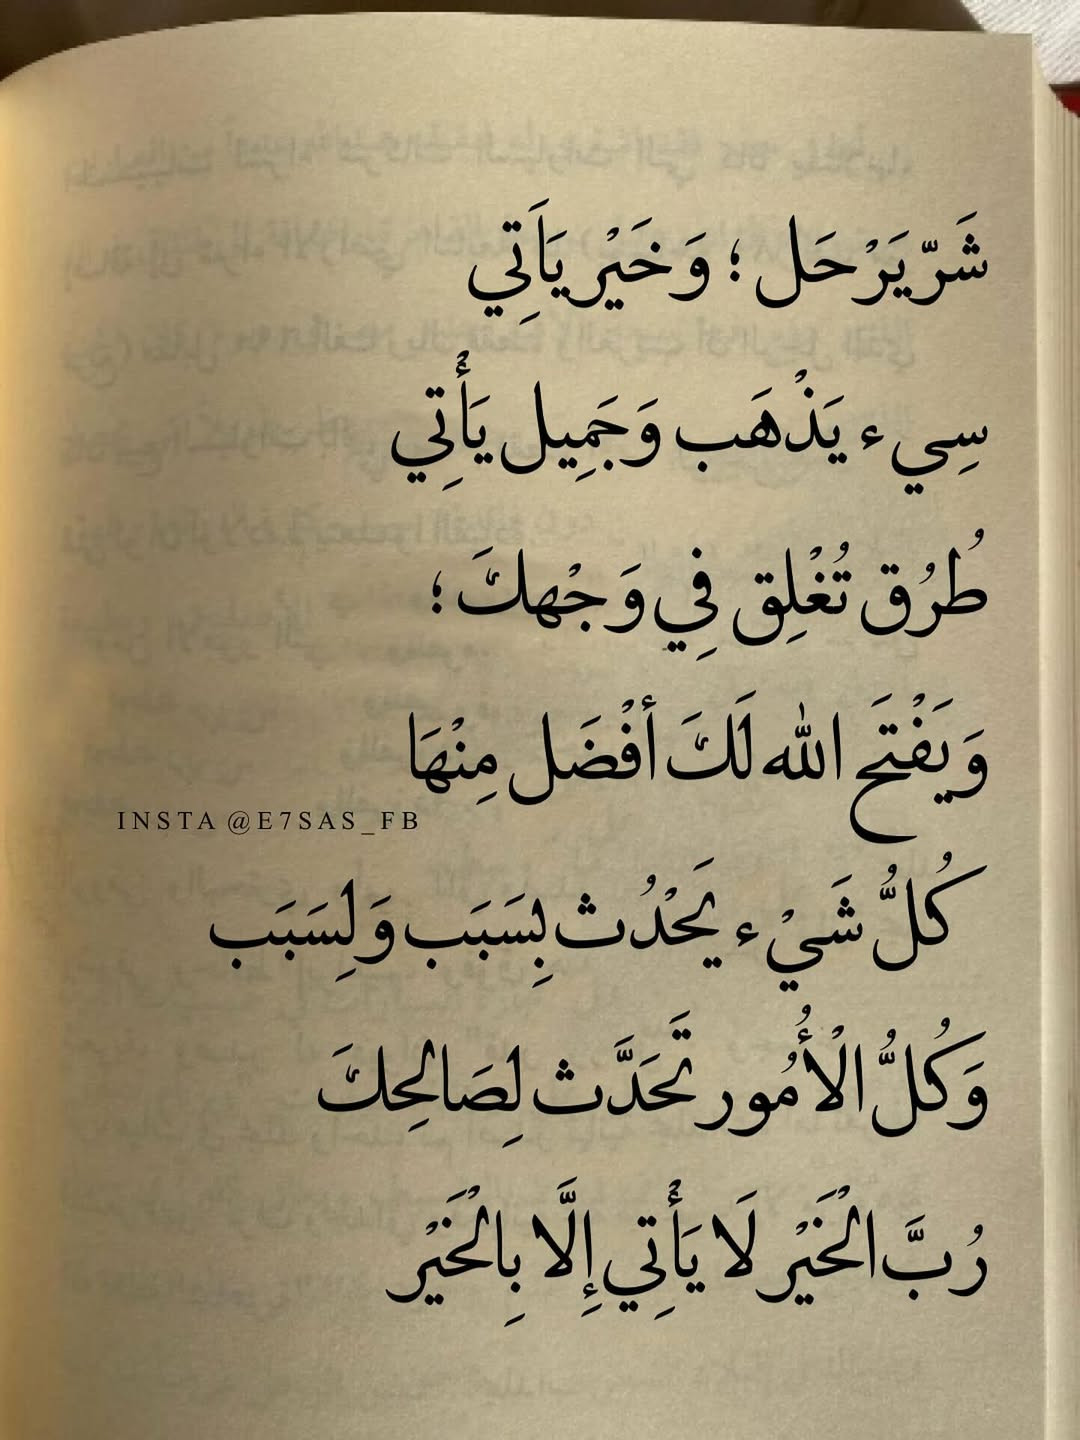 شَرّ يَرْحَل ؛ وَخَيْر يَاَتِي
سِيء يَذْهَب وَجَمِيل يَأْتِي
طُرُق تُغْلِق فِي وَجْهكَ ؛
وَيَفْتَح الله لَكَ أفْضَل مِنْهَا
INSTA @E7SAS_FB
كُلُّ شَيْء يَحْدُث بِسَبَب وَلِسَبَب
وَكُلُّ الْأُمُور تَحَدَّث لِصَالِحِكَ
رُبَّ الْخَيْر لَا يَأْتِي إِلَّا بِالْخَيْر